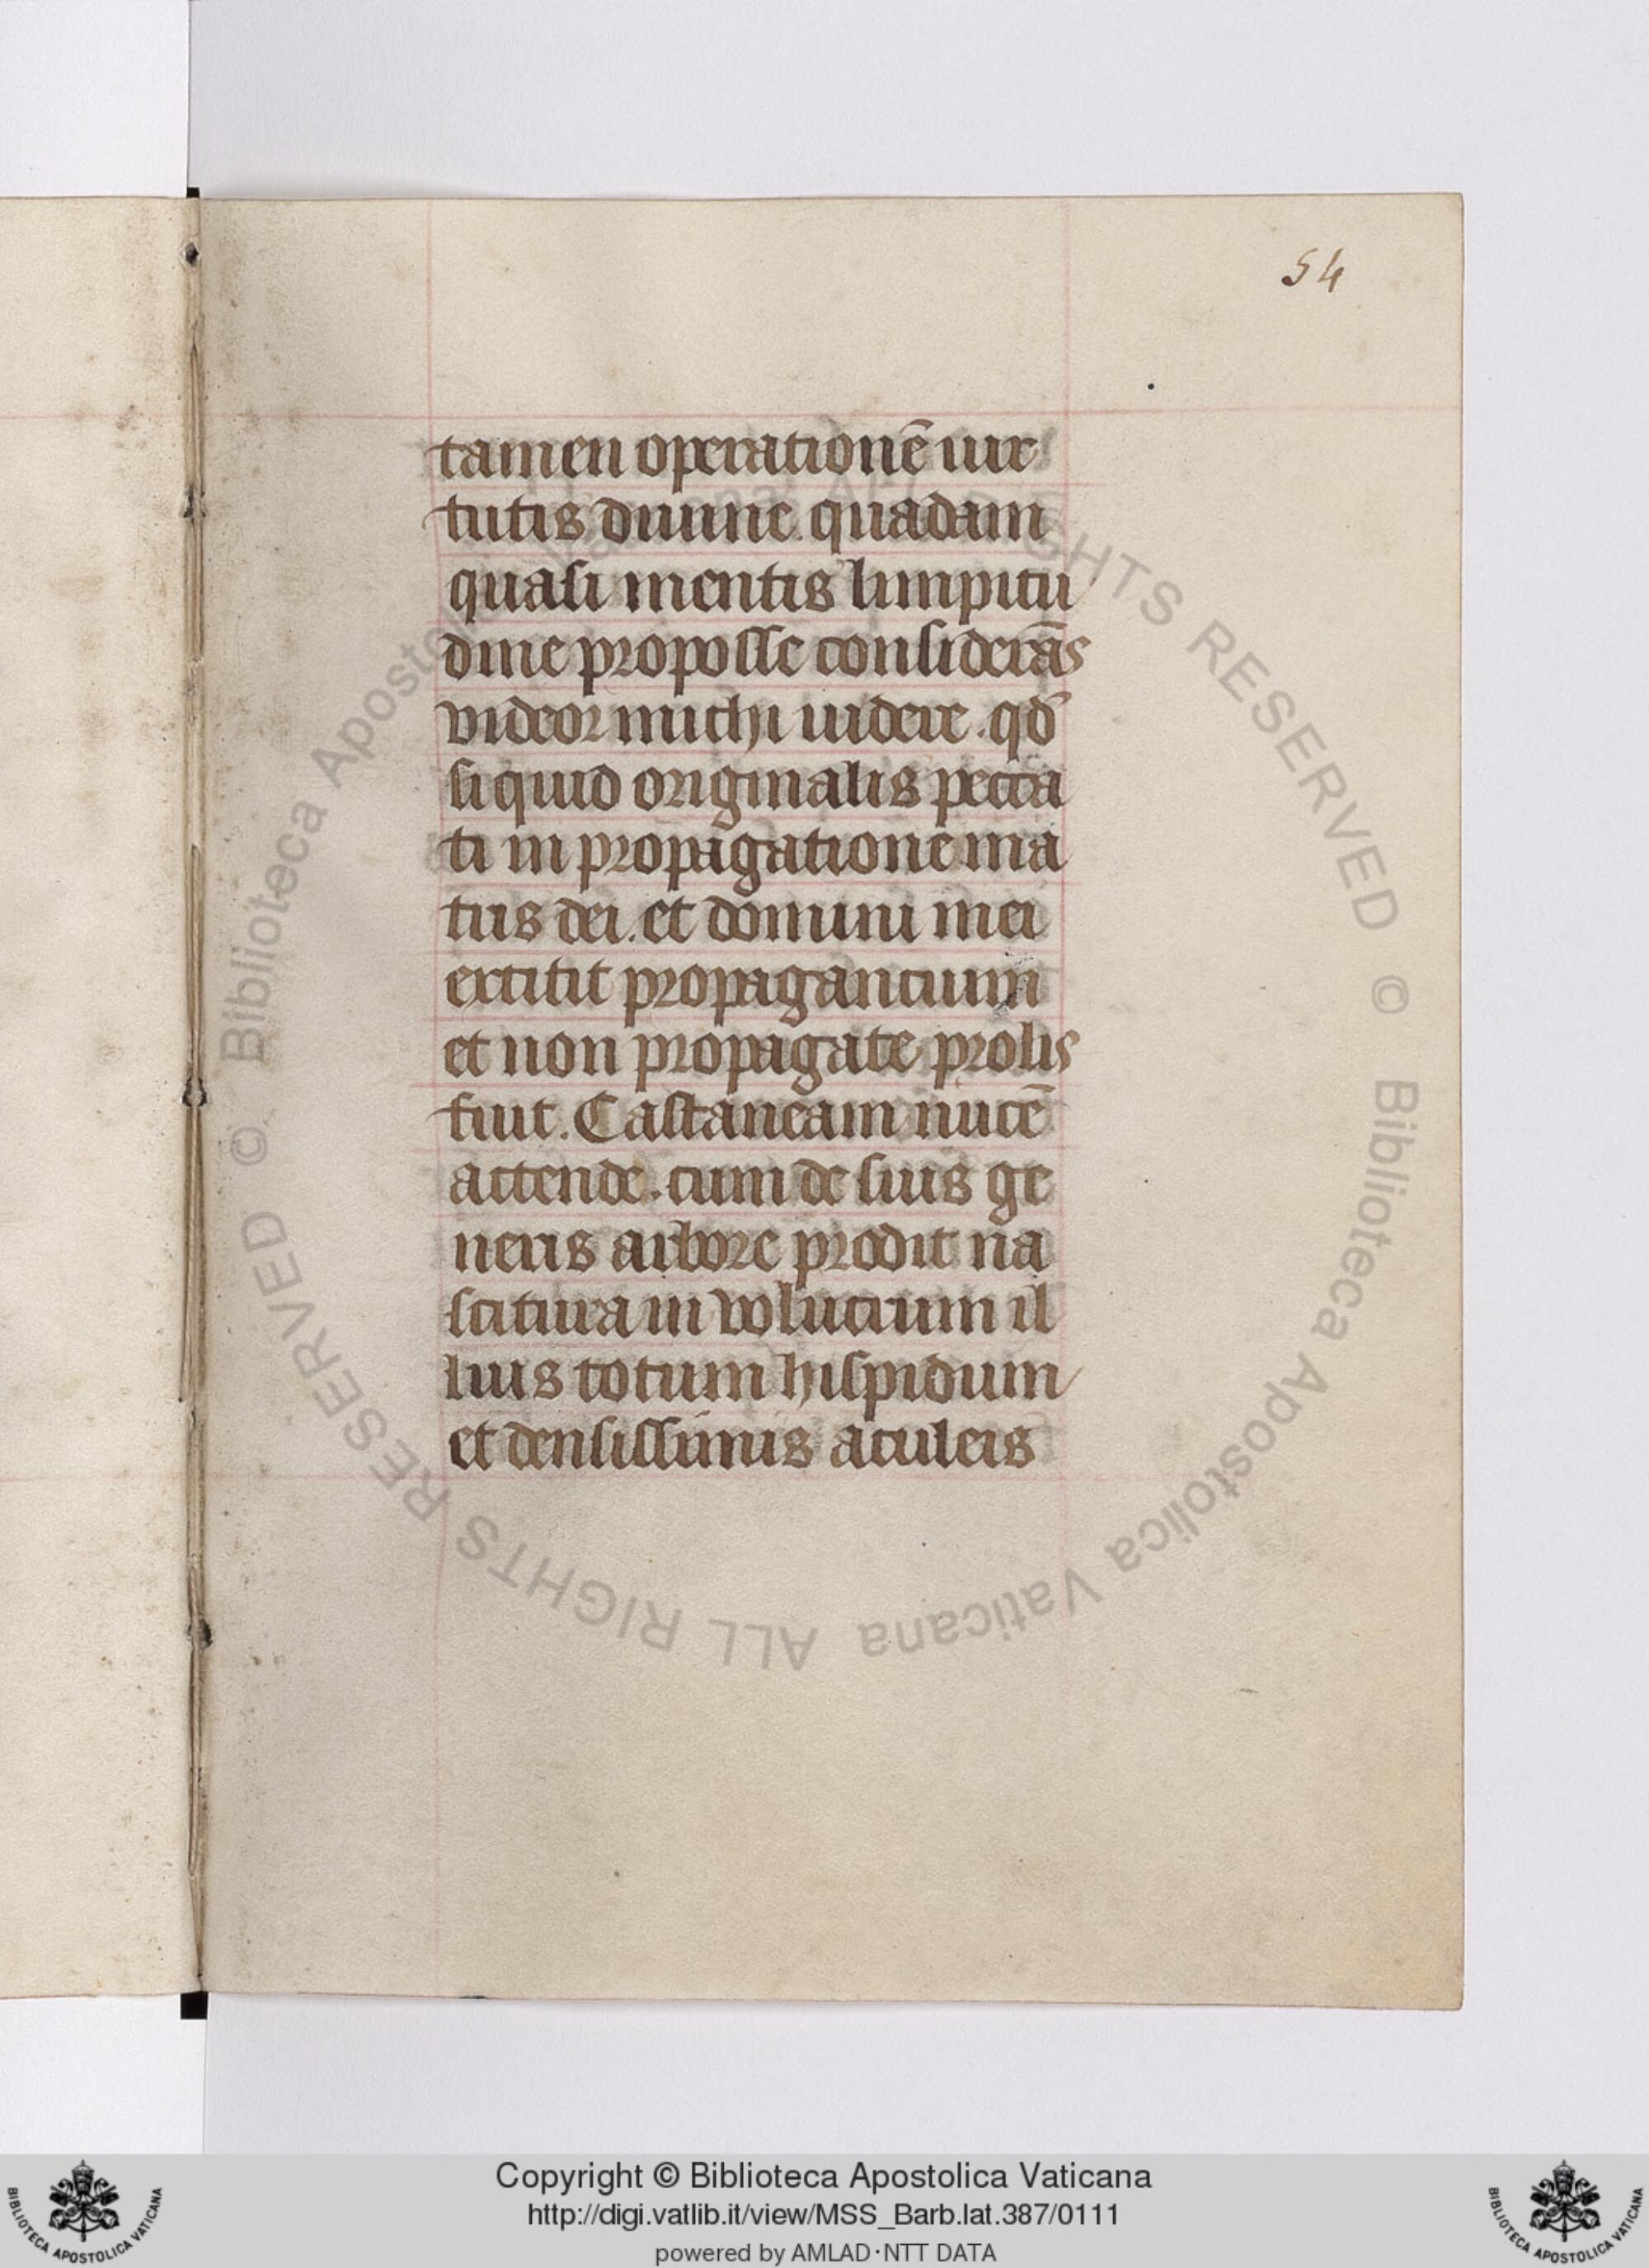 54
tamen operationē uir
tutis diuine. quadam
quasi mentis limpitu
dine pro posse considerās
videor michi uidere. qd̄
si quid originalis pecca
ti in propagatione ma
tris dei. et domini mei
extitit propagancium
et non propagate prolis
fuit. Castaneam nucē
attende. cum de suis ge
neris arbore prodit na
scitura in volucrum il
lius totum hispidum
et densissimis aculeis
© Biblioteca Apostolica Vaticana ALL RIGHTS RESERVED © Biblioteca Apostolica Vaticana ALL RIGHTS RESERVED
Copyright © Biblioteca Apostolica Vaticana
http://digi.vatlib.it/view/MSS_Barb.lat.387/0111
powered by AMLAD·NTT DATA
BIBLIOTECA APOSTOLICA VATICANA
BIBLIOTECA APOSTOLICA VATICANA